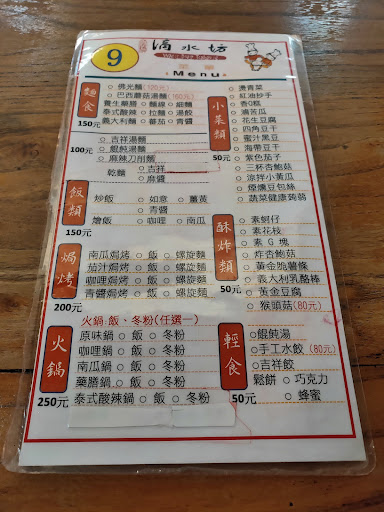 9
滴水坊
Water Drop Teahouse
Menu
麵食
150元
佛光麵(120元)
巴西蘑菇湯麵(160元)
養生藥膳 麵線 細麵
泰式酸辣 拉麵 湯餃
義大利麵 蕃茄 青醬
100元
吉祥湯麵
餛飩湯麵
麻辣刀削麵
乾麵 吉祥
麻醬
飯類
150元
炒飯 如意 薑黃
青醬
燴飯 咖哩 南瓜
焗烤
200元
南瓜焗烤 飯 螺旋麵
茄汁焗烤 飯 螺旋麵
咖哩焗烤 飯 螺旋麵
青醬焗烤 飯 螺旋麵
火鍋
250元
火鍋:飯、冬粉(任選一)
原味鍋 飯 冬粉
咖哩鍋 飯 冬粉
南瓜鍋 飯 冬粉
藥膳鍋 飯 冬粉
泰式酸辣鍋 飯 冬粉
小菜類
50元
燙青菜
紅油抄手
香Q糕
滷苦瓜
花生豆腐
四角豆干
蜜汁黑豆
海帶豆干
紫色茄子
三杯杏鮑菇
涼拌小黃瓜
煙燻豆包絲
蔬菜健康蒟蒻
酥炸類
50元
素蚵仔
素花枝
素 G 塊
炸杏鮑菇
黃金脆薯條
義大利乳酪棒
黃金豆腐
猴頭菇(80元)
輕食
50元
餛飩湯
手工水餃(80元)
吉祥餃
鬆餅 巧克力
蜂蜜